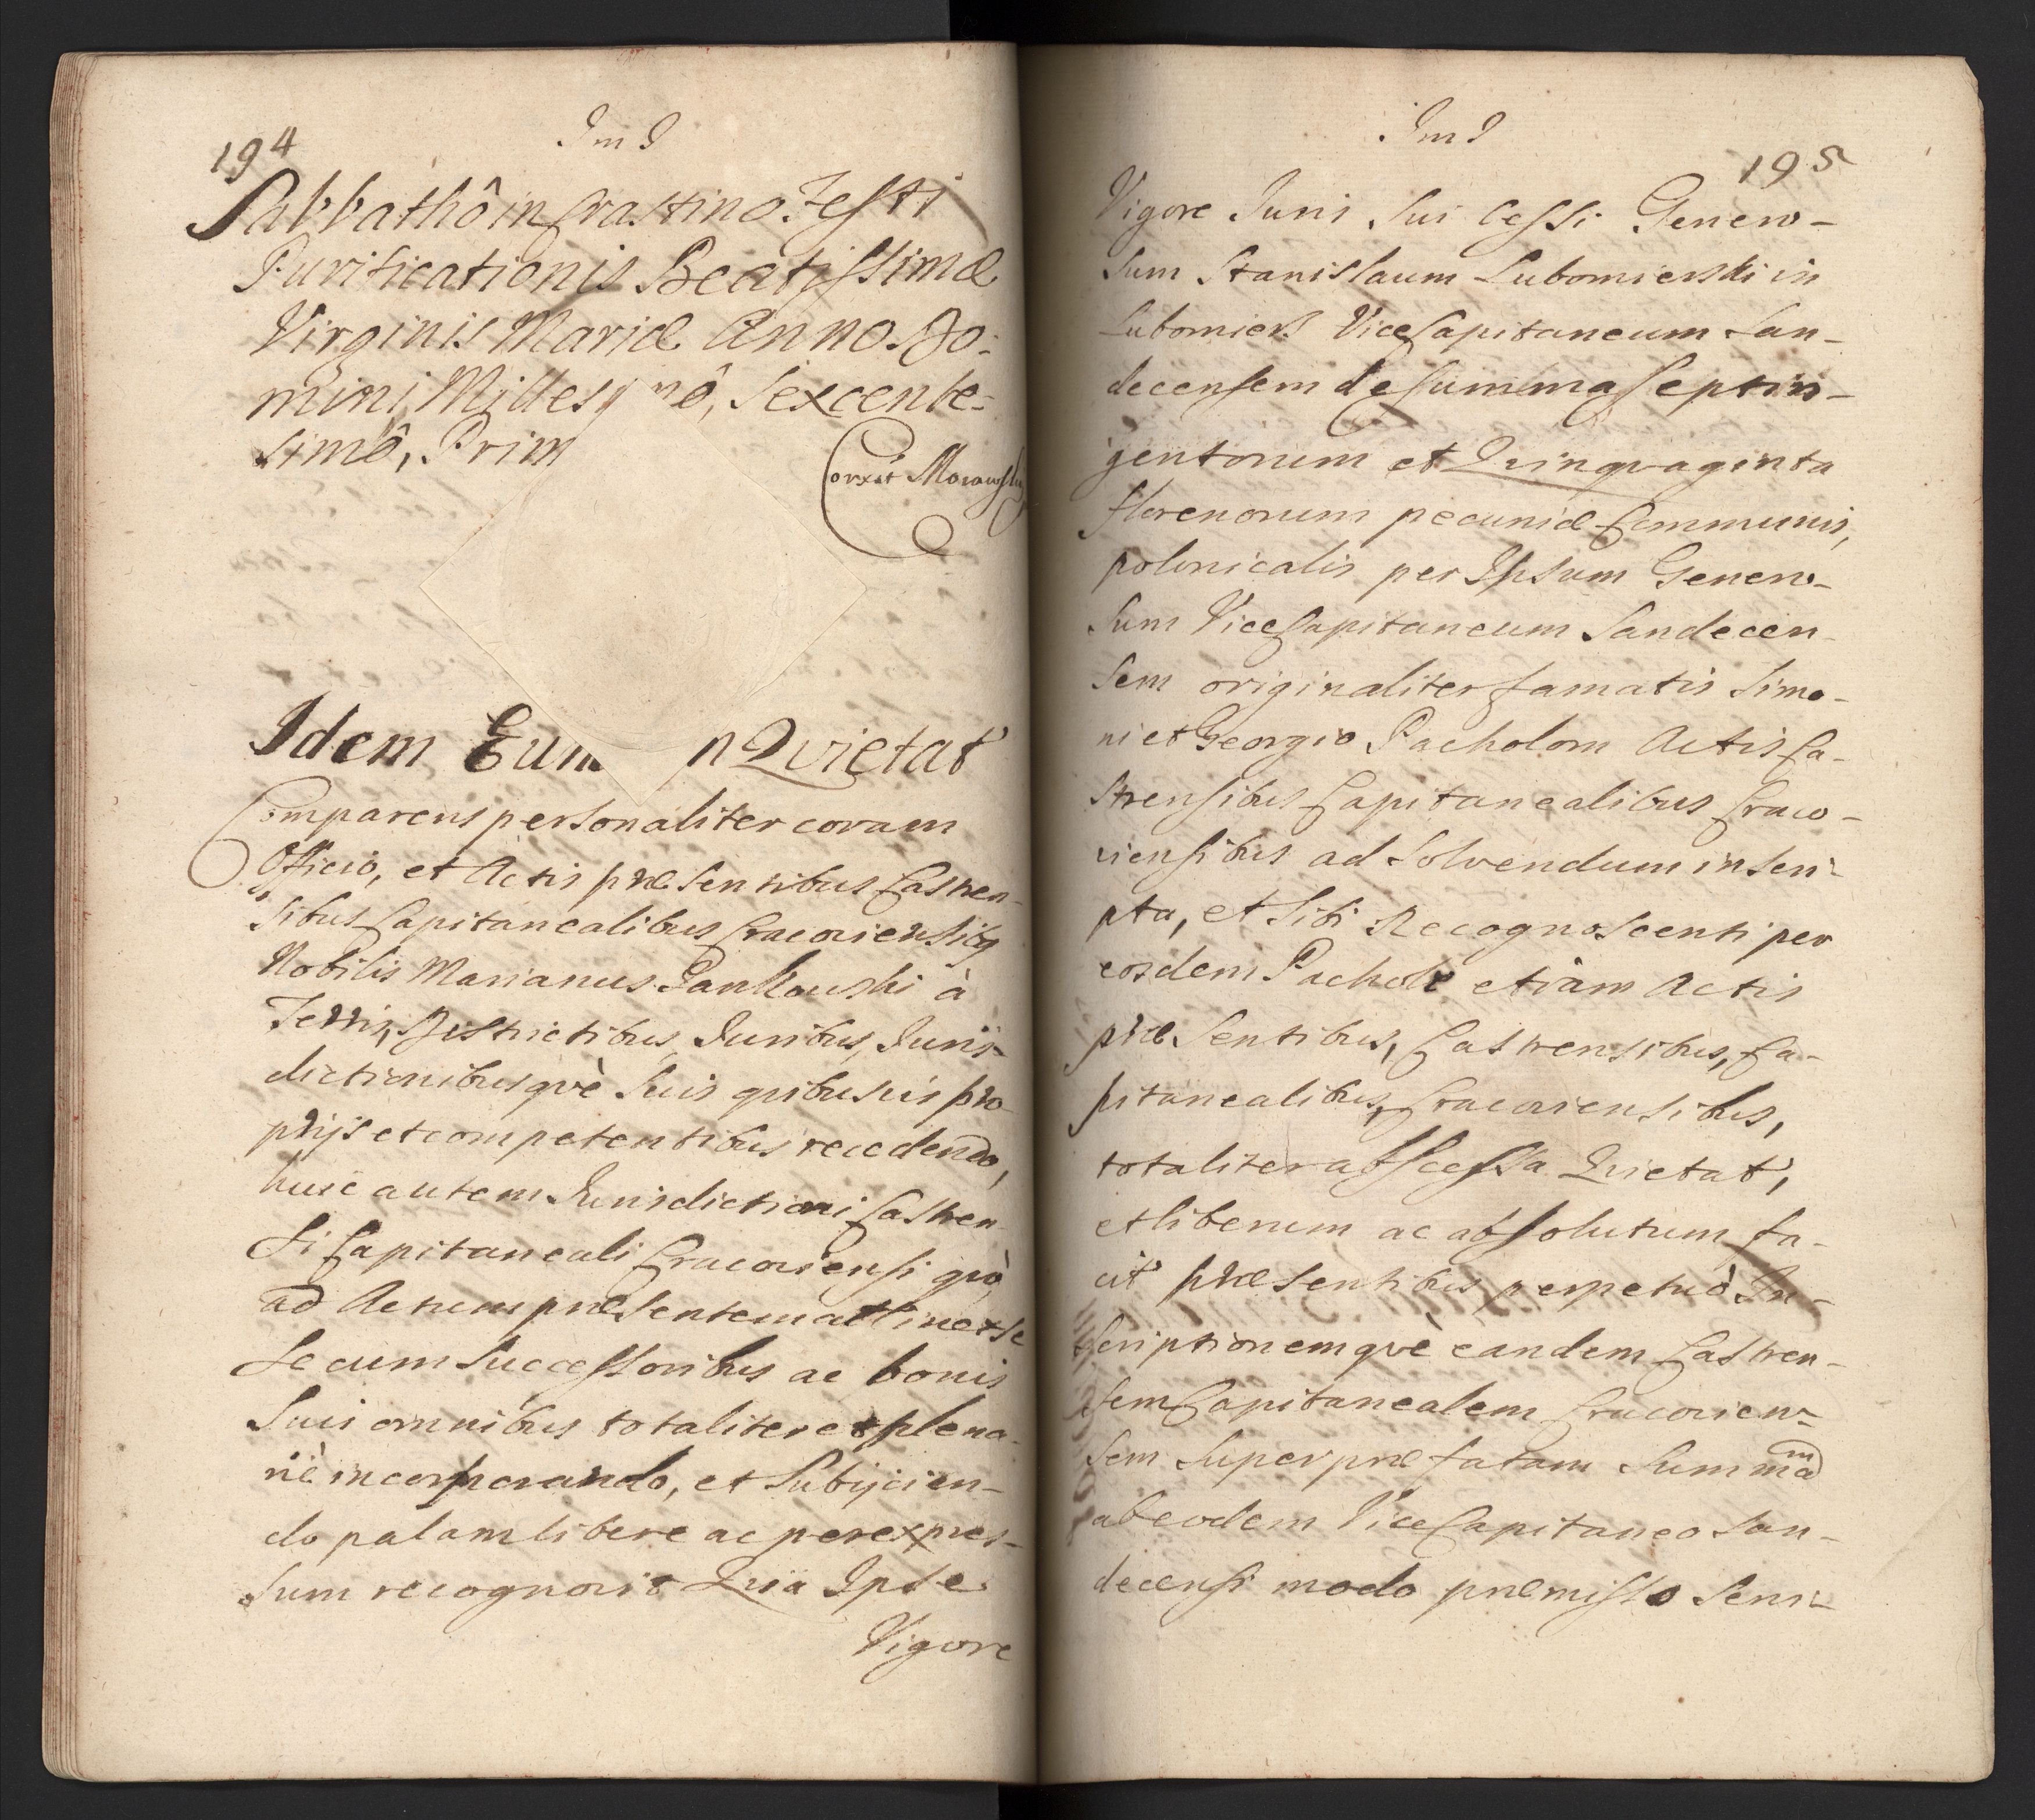 194
ImI
Sabbathô in Crastino Festi
Purificationis Beatissimæ
Virginis Mariæ Anno Do:
mini Millesi mô, Sexcente:
simô, Prim
Corxit Morawski
Idem Eum n Qvietat
Comparens personaliter coram
Officio, et Actis præsentibus Castren-
sibus Capitanealibus Cracoviensibq
Nobilis Marianus Jankowski à
Terris, Districtibus, Juribus, Juris-
dictionibusqvè suis qvibusvis pro-
prijs et competentibus recedendo,
huic autem Jurisdictioni Castren-
si Capitaneali Cracoviensi qvò
ad Actum præsentem attinet se
se cum Successoribus ac bonis
suis omnibus totaliter et plena-
riè incorporando, et Subijcien-
do palam libere ac per expres-
sum recognovit Qvia Ipse
Vigore
ImI
195
Vigore Juris Sui Cessi Genero-
sum Stanislaum Lubomierski in
Lubomierz ViceCapitaneum San-
decensem de summa Septin-
gentorum et Qvinqvaginta
florenorum pecuniæ Communis,
polonicalis per Ipsum Genero-
sum ViceCapitaneum Sandecen-
sem originaliter famatis Simo-
ni et Georgio Pacholom Actis Ca-
strensibus Capitanealibus Craco-
viensibus ad Solvendum inscri-
pta, et Sibi Recognoscenti per
eosdem Pachole etiam Actis
præsentibus, Castrensibus, Ca-
pitanealibus, Cracoviensibus,
totaliter abscessa Qvietat,
et liberum ac absolutum fa-
cit præsentibus perpetuò In-
scriptionemqvè eandem Castren-
sem Capitanealem Cracovien-
sem super præfatam Summam
ab eodem ViceCapitaneo San-
decensi modo præmisso Scri-